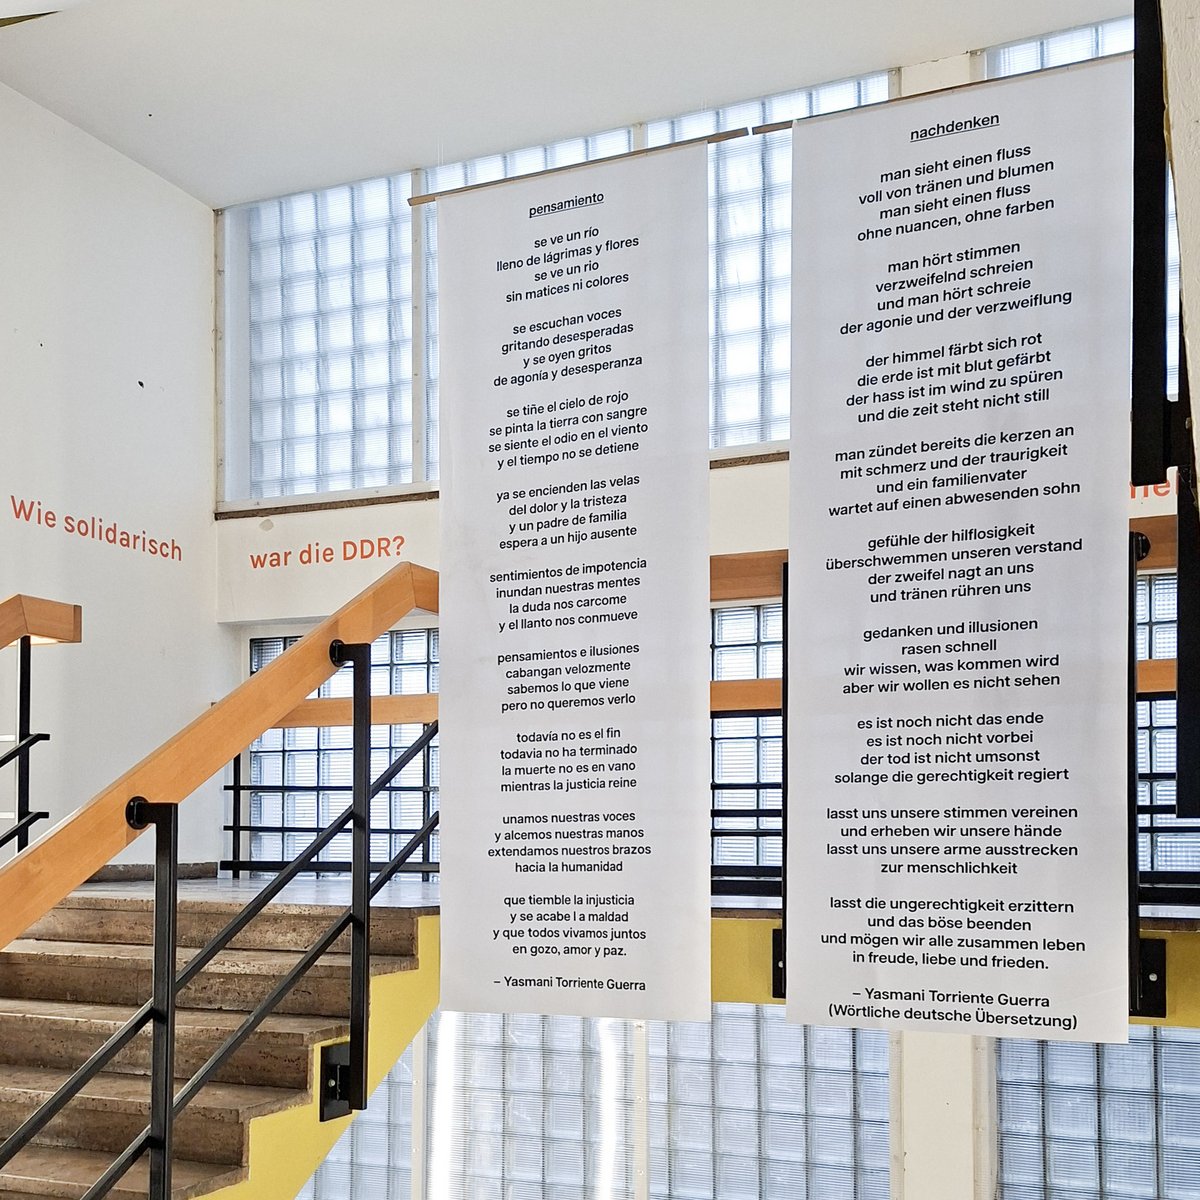 Wie solidarisch
war die DDR?
pensamiento
se ve un río
lleno de lágrimas y flores
se ve un rio
sin matices ni colores
se escuchan voces
gritando desesperadas
y se oyen gritos
de agonía y desesperanza
se tiñe el cielo de rojo
se pinta la tierra con sangre
se siente el odio en el viento
y el tiempo no se detiene
ya se encienden las velas
del dolor y la tristeza
y un padre de familia
espera a un hijo ausente
sentimientos de impotencia
inundan nuestras mentes
la duda nos carcome
y el llanto nos conmueve
pensamientos e ilusiones
cabangan velozmente
sabemos lo que viene
pero no queremos verlo
todavía no es el fin
todavia no ha terminado
la muerte no es en vano
mientras la justicia reine
unamos nuestras voces
y alcemos nuestras manos
extendamos nuestros brazos
hacia la humanidad
que tiemble la injusticia
y se acabe l a maldad
y que todos vivamos juntos
en gozo, amor y paz.
– Yasmani Torriente Guerra
nachdenken
man sieht einen fluss
voll von tränen und blumen
man sieht einen fluss
ohne nuancen, ohne farben
man hört stimmen
verzweifelnd schreien
und man hört schreie
der agonie und der verzweiflung
der himmel färbt sich rot
die erde ist mit blut gefärbt
der hass ist im wind zu spüren
und die zeit steht nicht still
man zündet bereits die kerzen an
mit schmerz und der traurigkeit
und ein familienvater
wartet auf einen abwesenden sohn
gefühle der hilflosigkeit
überschwemmen unseren verstand
der zweifel nagt an uns
und tränen rühren uns
gedanken und illusionen
rasen schnell
wir wissen, was kommen wird
aber wir wollen es nicht sehen
es ist noch nicht das ende
es ist noch nicht vorbei
der tod ist nicht umsonst
solange die gerechtigkeit regiert
lasst uns unsere stimmen vereinen
und erheben wir unsere hände
lasst uns unsere arme ausstrecken
zur menschlichkeit
lasst die ungerechtigkeit erzittern
und das böse beenden
und mögen wir alle zusammen leben
in freude, liebe und frieden.
– Yasmani Torriente Guerra
(Wörtliche deutsche Übersetzung)